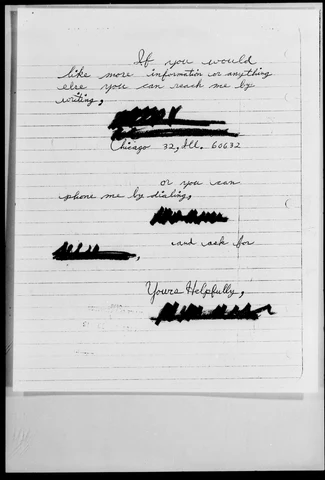 If you would
like more information or anything
else you can reach me by
writing,
Chicago 32, Ill. 60632
or you can
phone me by dialing,
and ask for
,
Yours Helpfully,